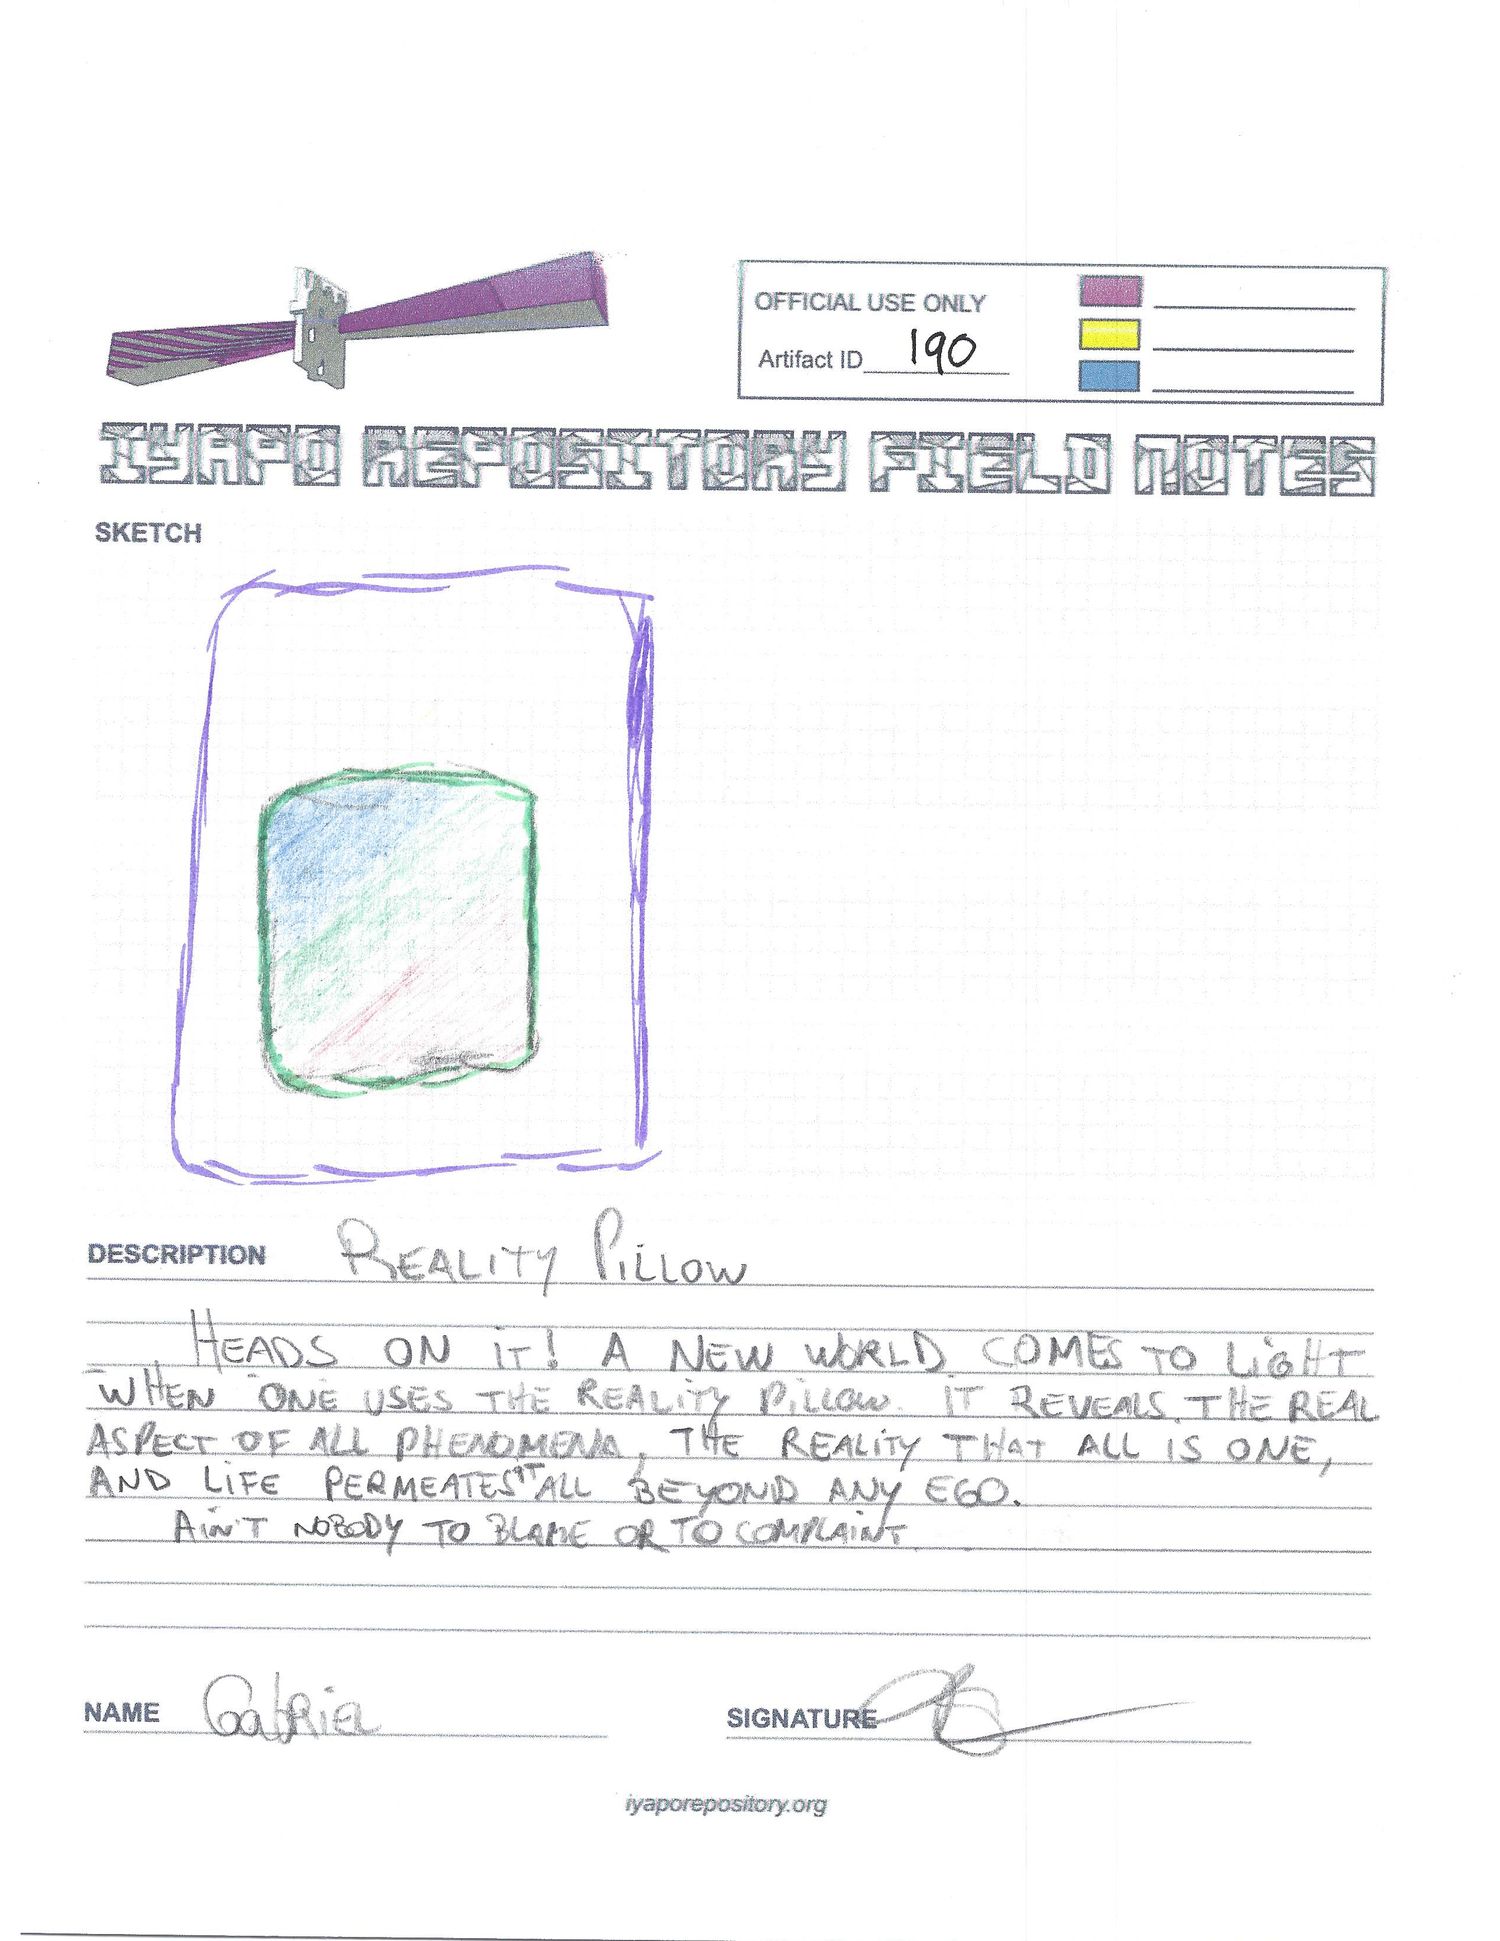 OFFICIAL USE ONLY
Artifact ID 190
IYAPO REPOSITORY FIELD NOTES
SKETCH
DESCRIPTION REALITY PILLOW
HEADS ON IT! A NEW WORLD COMES TO LIGHT
WHEN ONE USES THE REALITY PILLOW. IT REVEALS THE REAL
ASPECT OF ALL PHENOMENA, THE REALITY THAT ALL IS ONE,
AND LIFE PERMEATES IT ALL BEYOND ANY EGO.
AIN'T NOBODY TO BLAME OR TO COMPLAINT
NAME Gabriel
SIGNATURE
iyaporepository.org